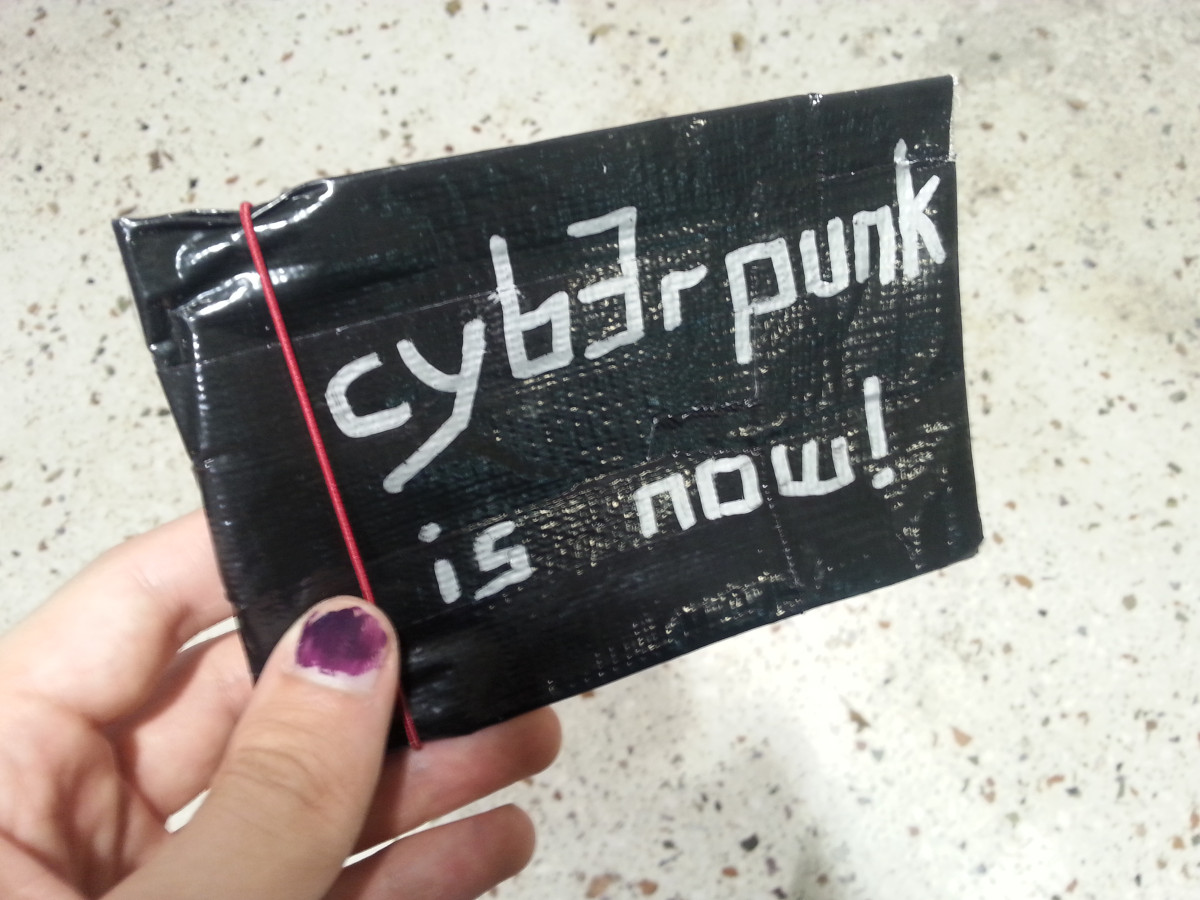 cyb3rpunk
is now!